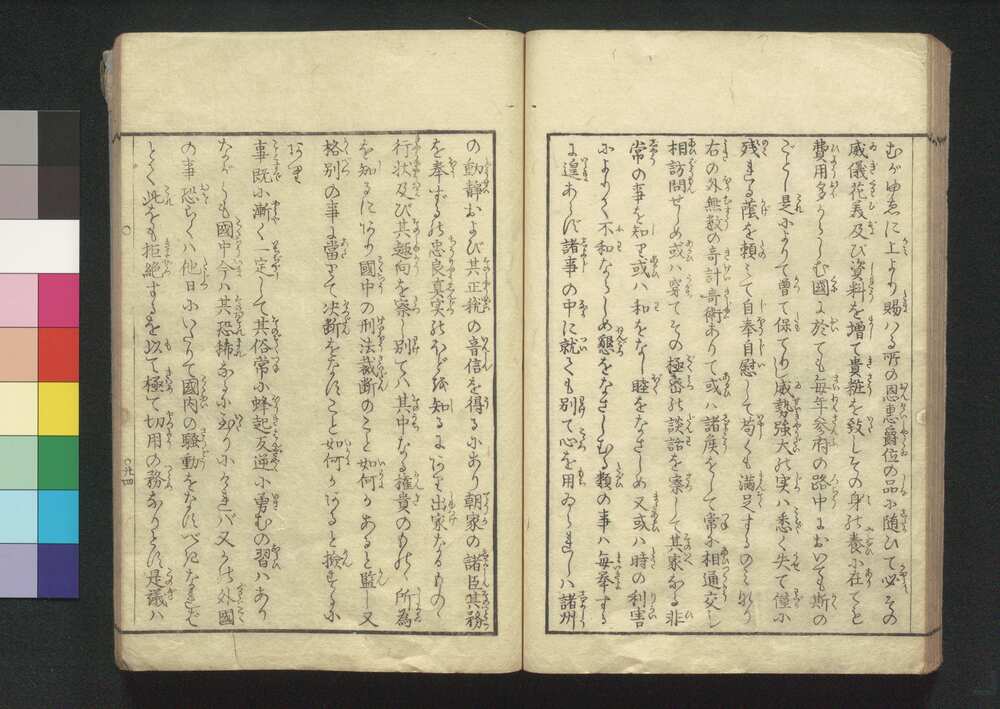 むがゆゑに上より賜はる所の恩恵爵位の品に随ひて必その
威儀花美及び資料を増て貴粧を致しその身の養に在てと
費用多からしむ國に於ても毎年参府の路中においても斯の
ごとし是によりて曾て保てりし威勢強大の実は悉く失て僅に
残れる蔭を頼みて自奉自慰して苟くも満足するのみなり
右の外無数の奇計奇術ありて或は諸侯をして常に相通交し
相訪問せしめ或は穿てその極密の談話を察して其家なる非
常の事を知り或は和をなし睦をなさしめ又或は時の利害
によりて不和ならしめ懇をなさしむる類の事は毎挙する
に遑あらず諸事の中に就ても別て心を用ゐらるゝは諸州
の動静および其正税の音信を得るにあり朝家の諸臣其務
を奉ずるの忠良真実のほどを知るにあり出家なるものゝ
行状及び其趣向を察し別ては其中なる権貴のものゝ所為
を知るにあり國中の刑法裁断のこと如何かあると監し又
格別の事に當りて决断をなすこと如何かなると撿するに
あり
事既に漸く一定して其俗常に蜂起反逆に勇むの習はあり
ながらも國中今は其恐怖なきに至りにけれバ又かの外國
の事恐らくは他日にいたりて國内の騒動をなすべきなれバ
とく此をも拒絶するを以て極て切用の務なりとす是議は